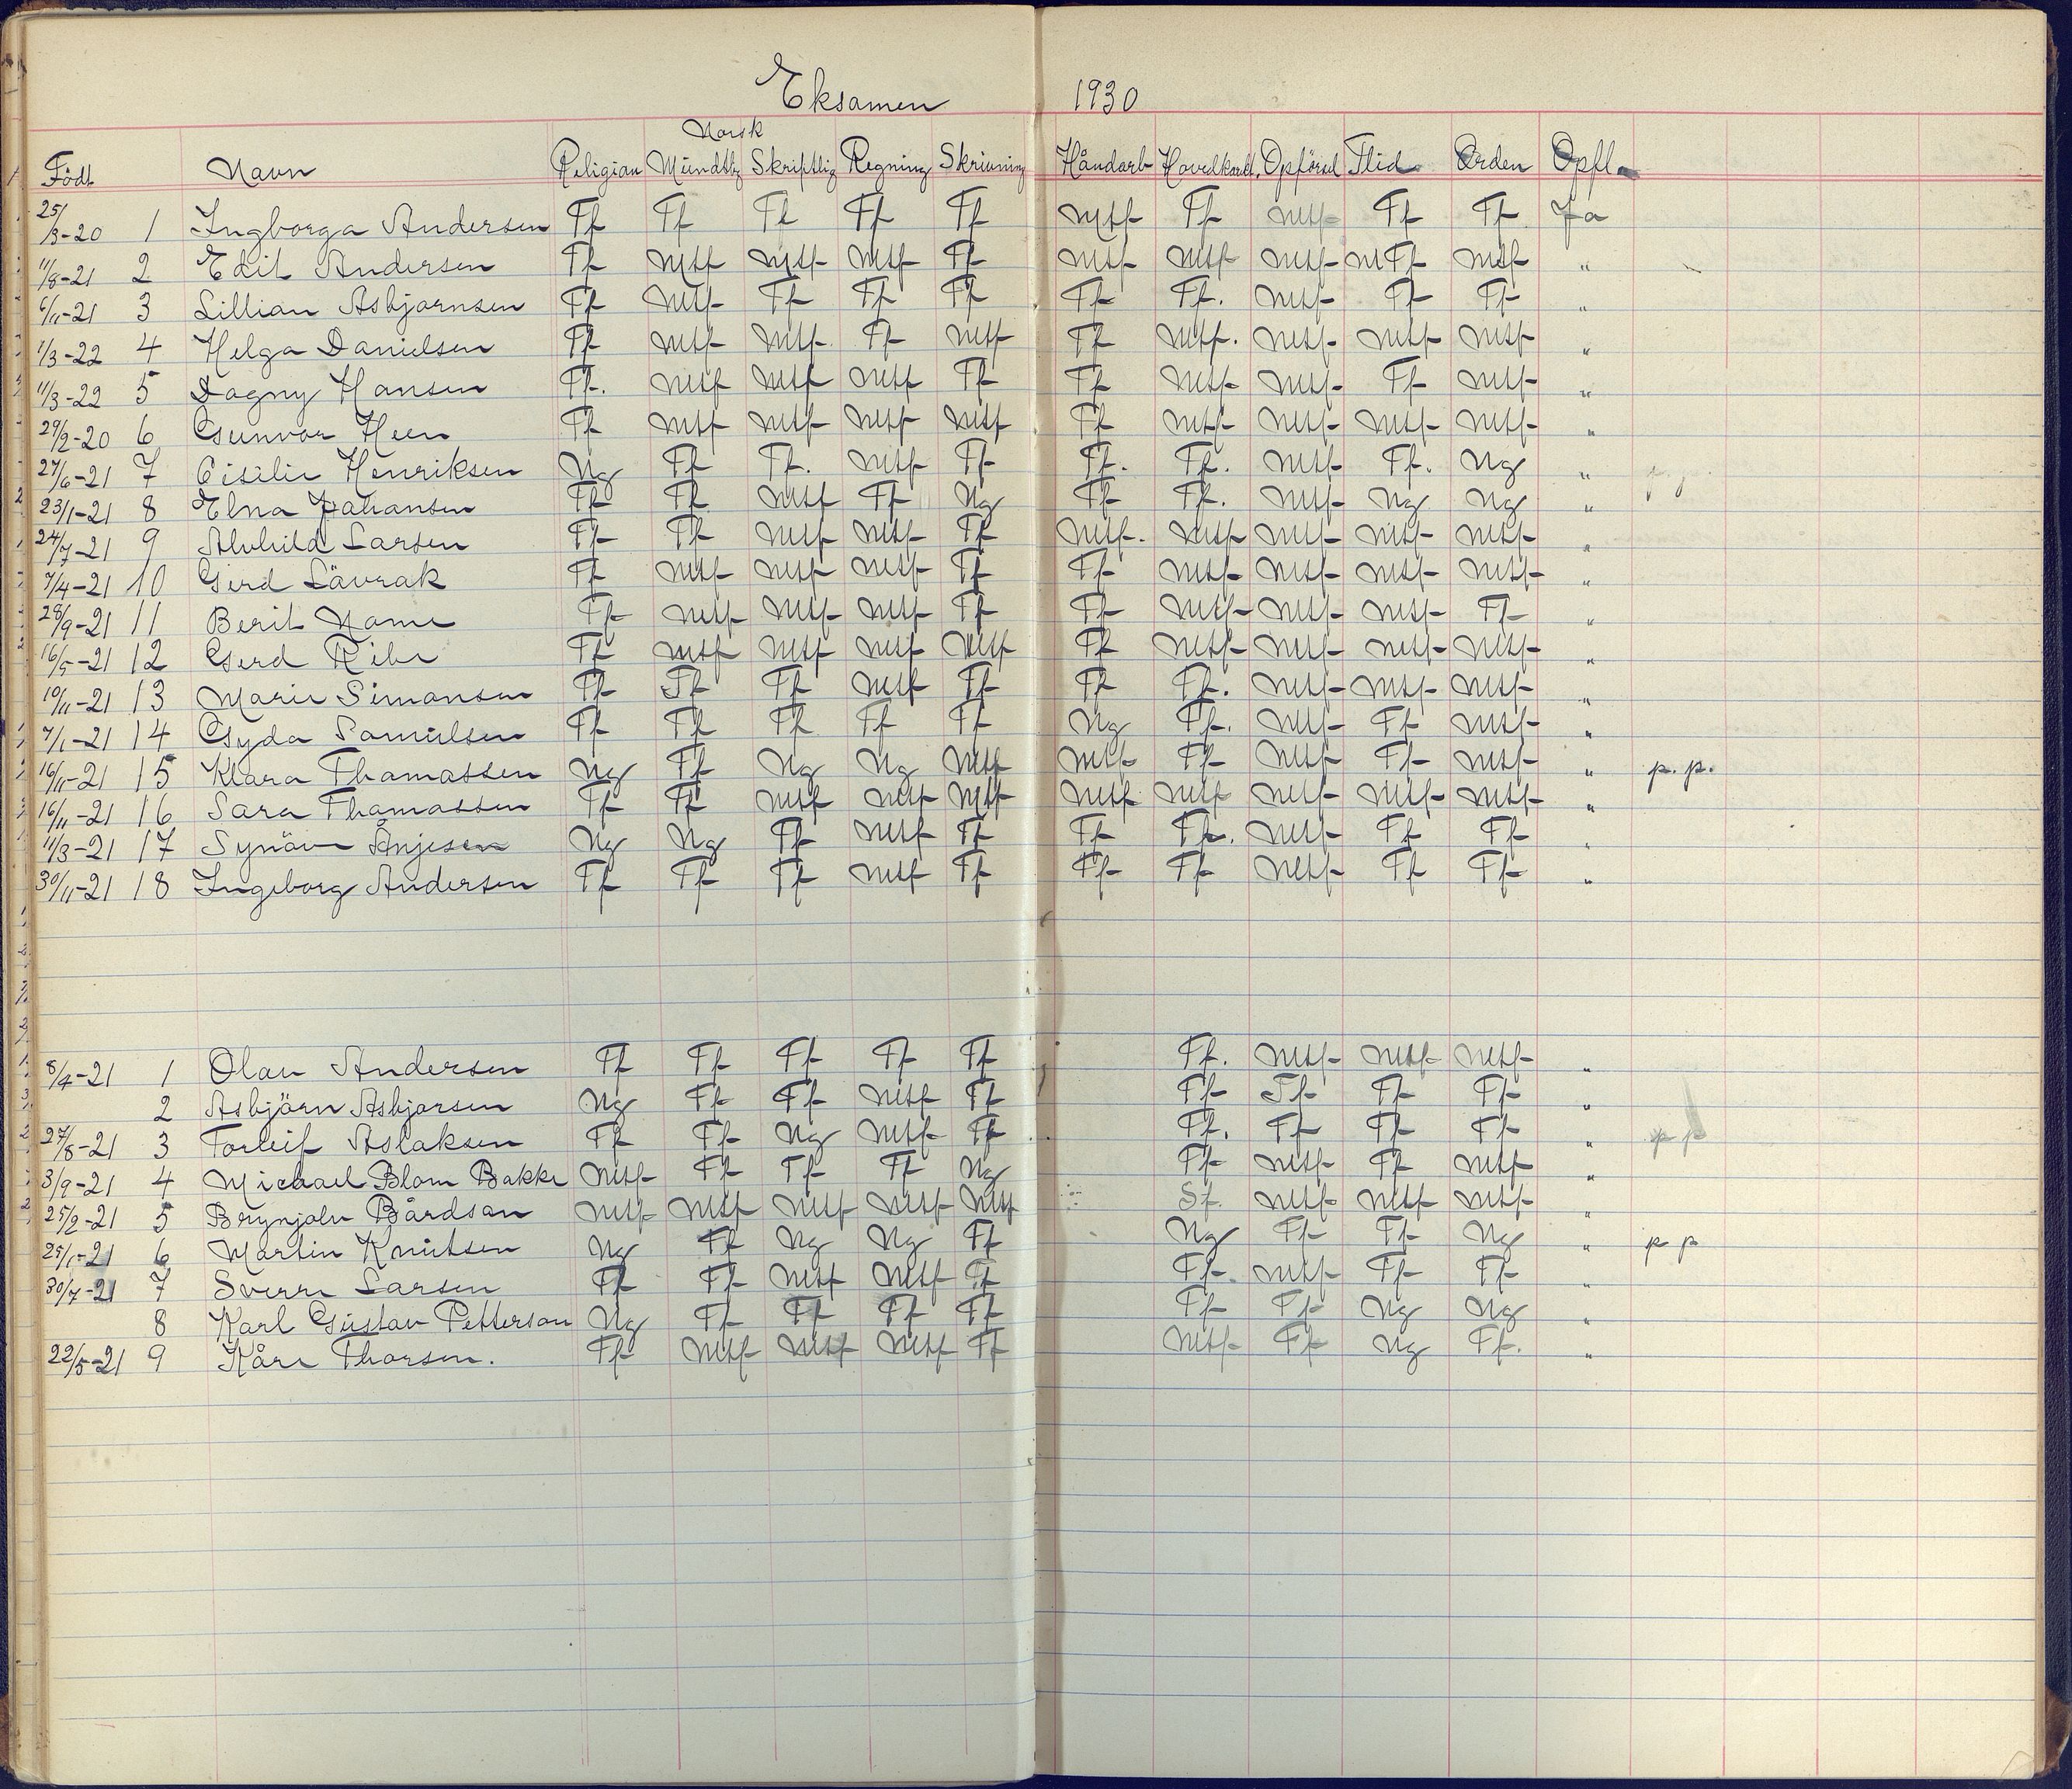 Eksamen 1930
Norsk
Födt Navn Religion Mündtlig Skriftlig Regning Skrivning Håndarb Hovedkarkt. Opförsel Flid Orden Opfl.
25/3-20 1 Ingborga Andersen Tf Tf Tf Tf Tf Mtf Tf Mtf Tf Tf Ja
11/8-21 2 Edit Andersen Tf Mtf Mtf Mtf Tf Mtf Mtf Mtf MTf Mtf "
6/11-21 3 Lillian Asbjørnsen Tf Mtf Tf Tf Tf Tf Tf. Mtf Tf Tf "
1/3-22 4 Helga Danielsen Tf Mtf Mtf. Tf Mtf Tf Mtf. Mtf Mtf Mtf "
11/3-22 5 Dagny Hansen Tf. Mtf Mtf Mtf Tf Tf Mtf Mtf Tf Mtf "
29/2-20 6 Gunvor Heen Tf Mtf Mtf Mtf Mtf Tf Mtf Mtf Mtf Mtf "
27/6-21 7 Cisilie Henriksen Ng Tf Tf. Mtf Tf Tf. Tf. Mtf Tf. Ng "
23/1-21 8 Elna Johansen Tf Tf Mtf Tf Ng Tf Tf. Mtf Ng Ng "
24/7-21 9 Alvhild Larsen Tf Tf Mtf Mtf Tf Mtf. Mtf Mtf Mtf Mtf "
7/4-21 10 Gerd Lävrak Tf Mtf Mtf Mtf Tf Tf Mtf Mtf Mtf Mtf "
28/9-21 11 Berit Name Tf Mtf Mtf Mtf Tf Tf Mtf Mtf Mtf Tf "
16/5-21 12 Gerd Ribe Tf Mtf Mtf Mtf Mtf Tf Mtf Mtf Mtf Mtf "
10/11-21 13 Marie Simonsen Tf Tf Tf Mtf Tf Tf Tf. Mtf Mtf Mtf "
7/1-21 14 Gyda Samuelsen Tf Tf Tf Tf Tf Ng Tf. Mtf Tf Mtf "
16/11-21 15 Klara Thomassen Ng Tf Ng Ng Mtf Mtf Tf Mtf Tf Mtf " p. p.
16/11-21 16 Sara Thomassen Tf Tf Mtf Mtf Mtf Mtf Mtf Mtf Mtf Mtf "
11/3-21 17 Synäve Ånjesen Ng Ng Tf Mtf Tf Tf Tf. Mtf Tf Tf "
30/11-21 18 Ingeborg Andersen Tf Tf Tf Mtf Tf Tf Tf Mtf Tf Tf "
8/4-21 1 Olav Andersen Tf Tf Tf Tf Tf Tf. Mtf Mtf Mtf "
2 Asbjörn Asbjorsen Ng Tf Tf Mtf Tf Tf Tf Tf Tf "
27/8-21 3 Torleif Aslaksen Tf Tf Ng Mtf Tf Tf. Tf Tf Tf " p p
3/9-21 4 Michael Blom Bakke Mtf Tf Tf Tf Ng Tf Mtf Tf Mtf "
25/2-21 5 Brynjolv Bårdsen Mtf Mtf Mtf Mtf Mtf Sf. Mtf Mtf Mtf "
25/1-21 6 Martin Knutsen Ng Tf Ng Ng Tf Ng Tf Tf Ng " p p
30/7-21 7 Sverre Larsen Tf Tf Mtf Mtf Tf Tf. Mtf Tf Tf "
8 Karl Gustav Petterson Ng Tf Tf Tf Tf Tf Tf Ng Ng "
22/5-21 9 Kåre Thorsen. Tf Mtf Mtf Mtf Tf Mtf Tf Ng Tf. "